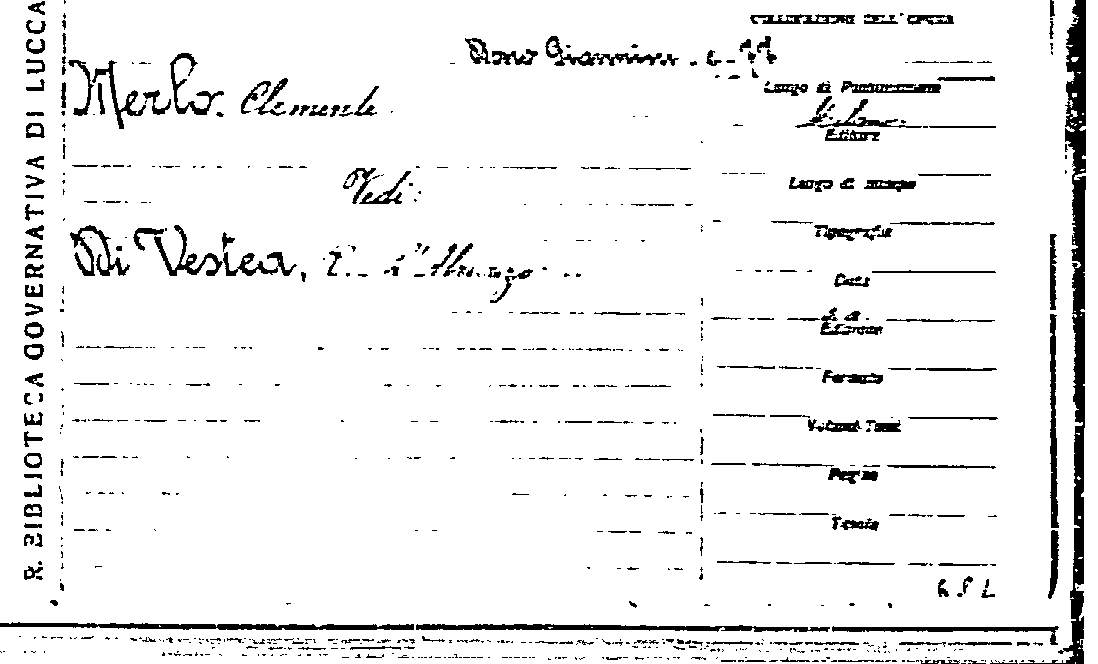 R. BIBLIOTECA GOVERNATIVA DI LUCCA
COLLOCAZIONE DELL'OPERA
Dono Giannini.
Luogo di Pubblicazione
Merlo. Clemente
Milano.
Editore
Luogo di stampa
Vedi:
Tipografia
Di Vestea,
Data
s. a.
Edizione
Formato
Volumi Tomi
Pagine
Tavole